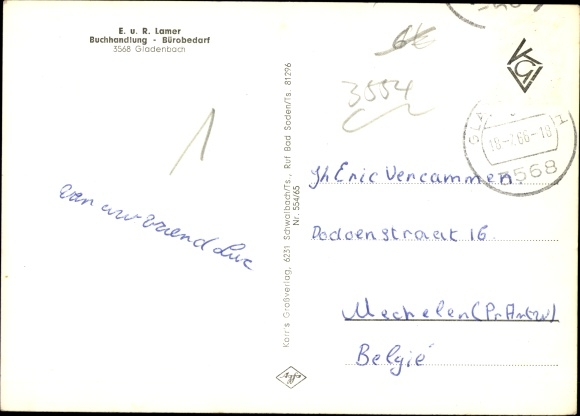 E. u. R. Lamer
Buchhandlung - Bürobedarf
3568 Gladenbach
van uw vriend Luc
Karr's Großverlag, 6231 Schwalbach/Ts., Ruf Bad Soden/Ts. 81296
Nr. 554/65
Agfa
6€
3554
KGV
18-7.66-18
3568
Jh Eric Vercammen
Dodoenstraat 16
Mechelen (Pr. Antw)
België